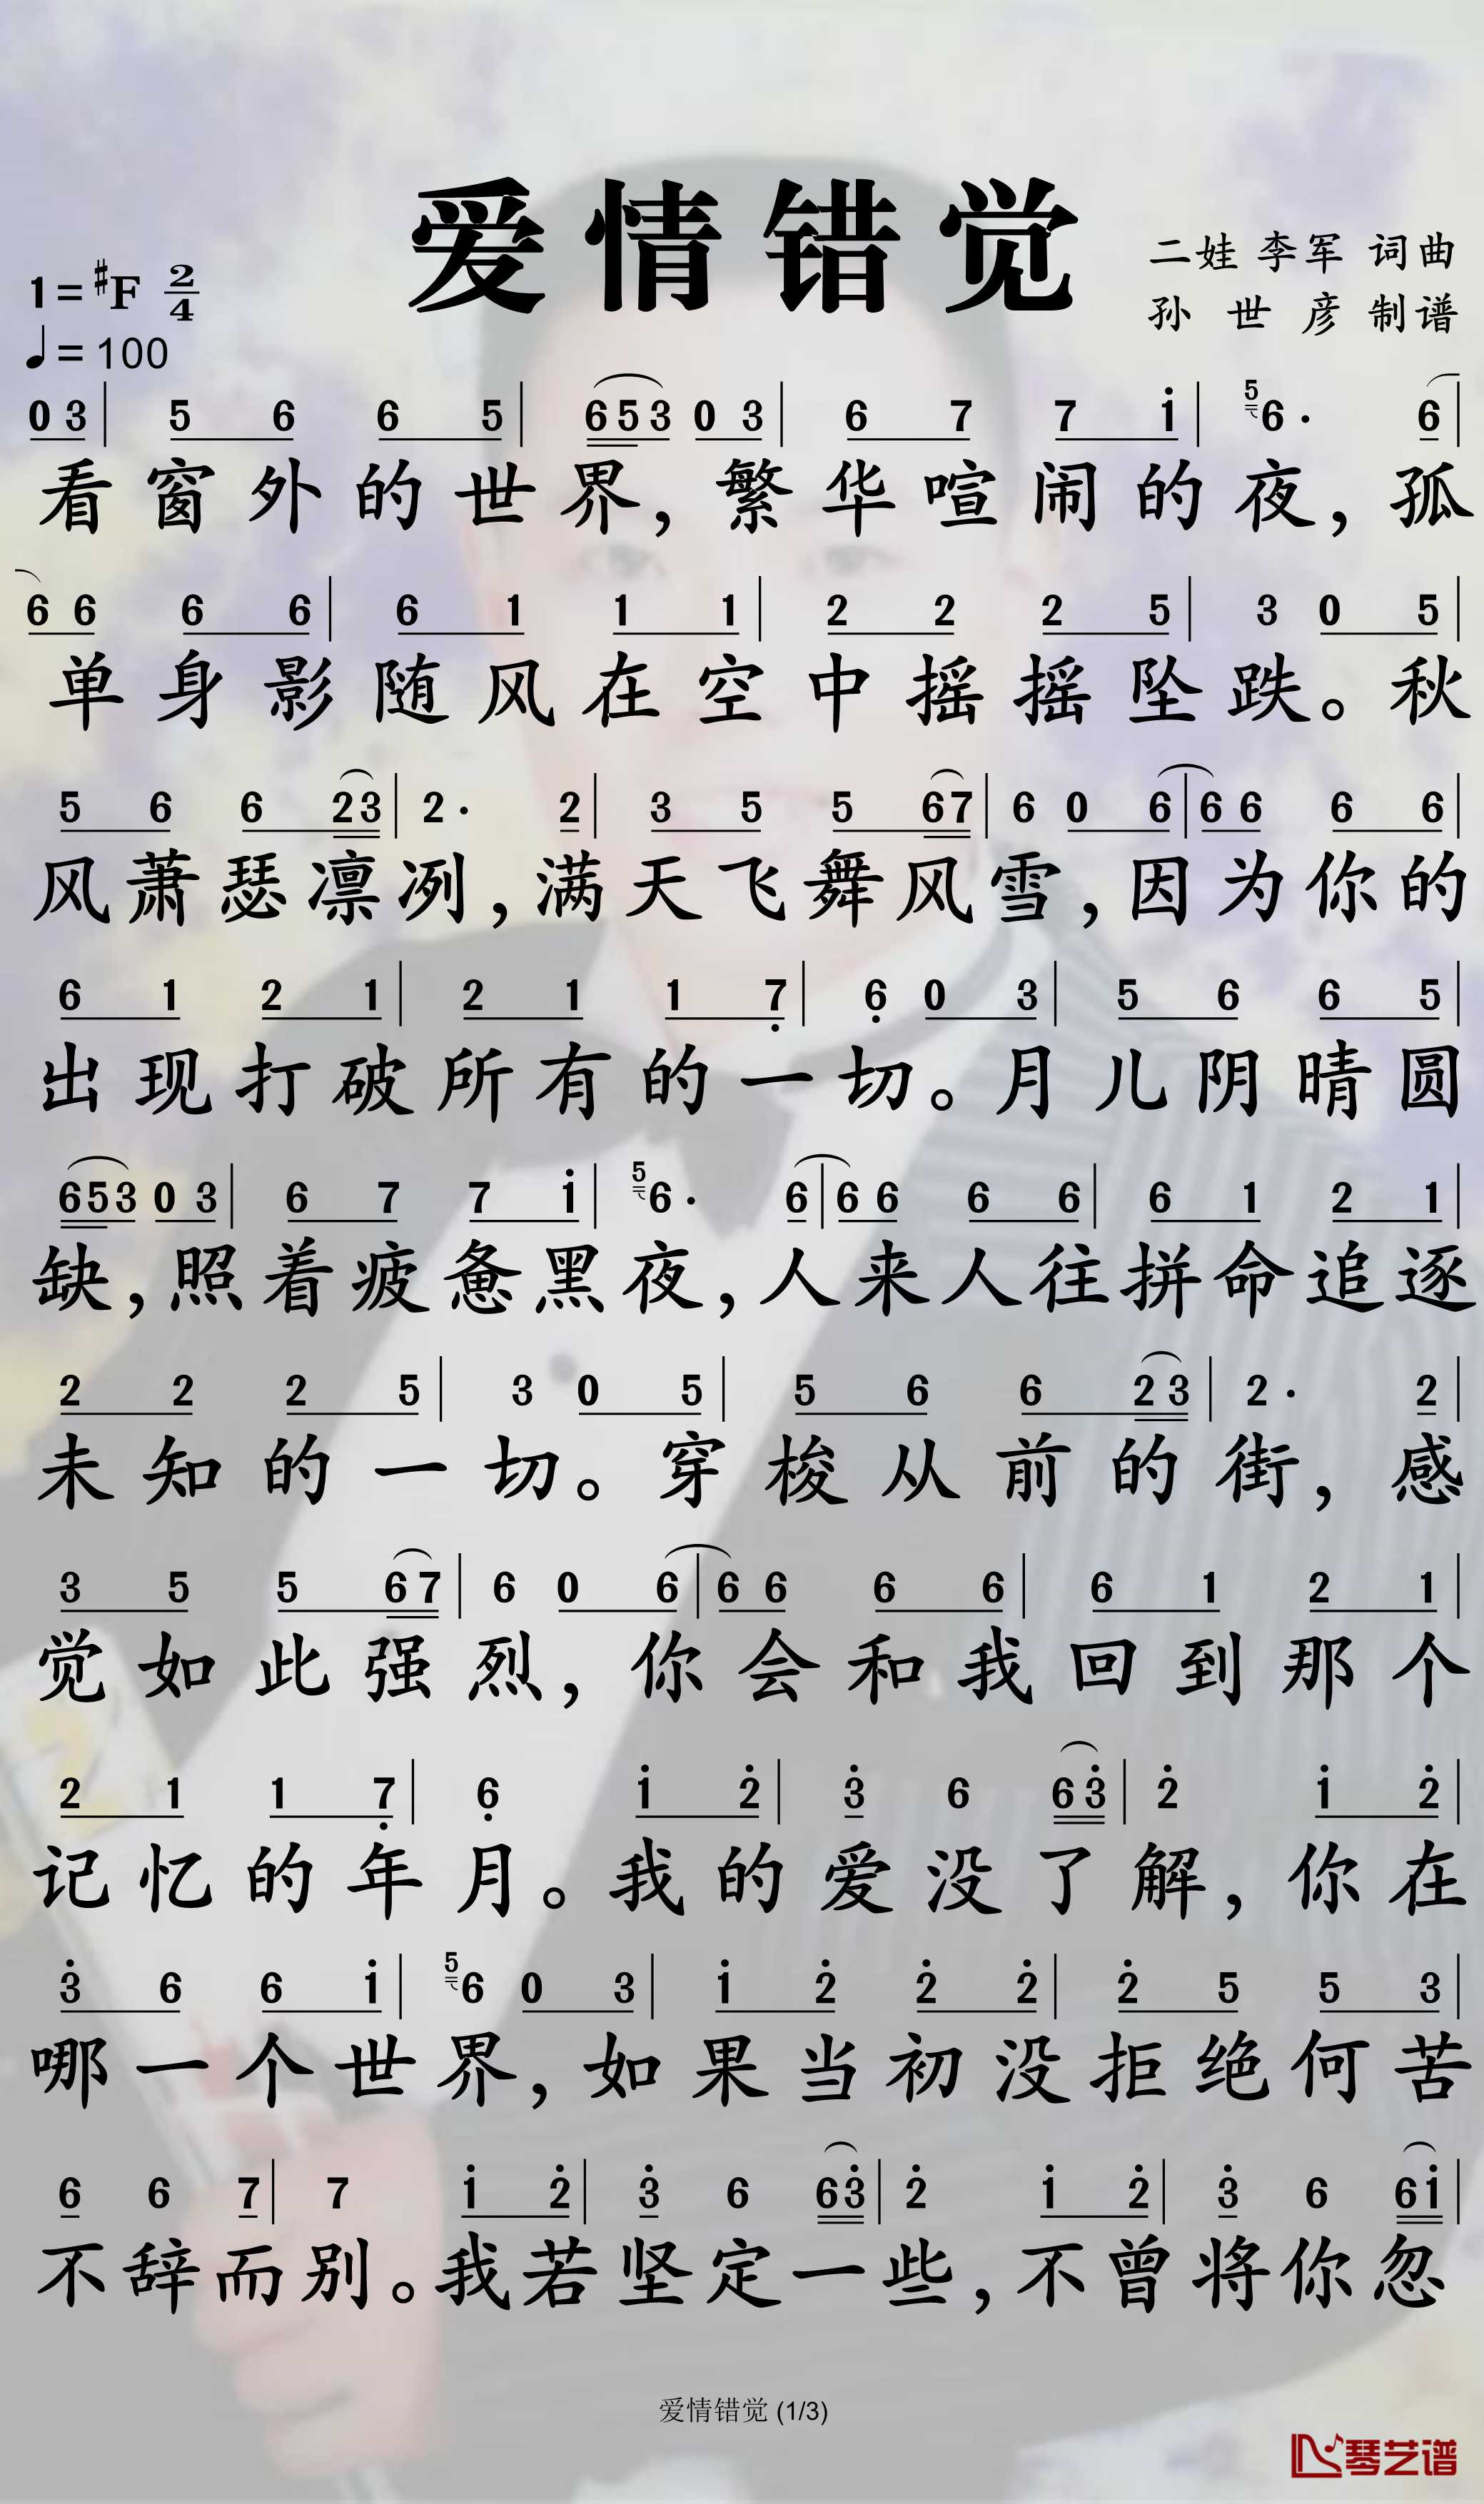 爱情错觉
二娃 李军 词曲
孙世彦 制谱
1=#F 2/4
♩=100
0 3 | 5 6 6 5 | 6 5 3 0 3 | 6 7 7 i | 5 6· 6 |
看窗外的世界，繁华喧闹的夜，孤
6 6 6 6 | 6 1 1 1 | 2 2 2 5 | 3 0 5 |
单身影随风在空中摇摇坠跌。秋
5 6 6 2 3 | 2· 2 | 3 5 5 6 7 | 6 0 6 | 6 6 6 6 |
风萧瑟凛冽，满天飞舞风雪，因为你的
6 1 2 1 | 2 1 1 7̣ | 6̣ 0 3 | 5 6 6 5 |
出现打破所有的一切。月儿阴晴圆
6 5 3 0 3 | 6 7 7 i | 5 6· 6 | 6 6 6 6 | 6 1 2 1 |
缺，照着疲惫黑夜，人来人往拼命追逐
2 2 2 5 | 3 0 5 | 5 6 6 2 3 | 2· 2 |
未知的一切。穿梭从前的街，感
3 5 5 6 7 | 6 0 6 | 6 6 6 6 | 6 1 2 1 |
觉如此强烈，你会和我回到那个
2 1 1 7̣ | 6̣ i 2̇ | 3̇ 6 6 3̇ | 2̇ i 2̇ |
记忆的年月。我的爱没了解，你在
3̇ 6 6 i | 5 6 0 3 | i 2̇ 2̇ 2̇ | 2̇ 5 5 3 |
哪一个世界，如果当初没拒绝何苦
6 6 7 | 7 i 2̇ | 3̇ 6 6 3̇ | 2̇ i 2̇ | 3̇ 6 6 i |
不辞而别。我若坚定一些，不曾将你忽
爱情错觉 (1/3)
琴艺谱